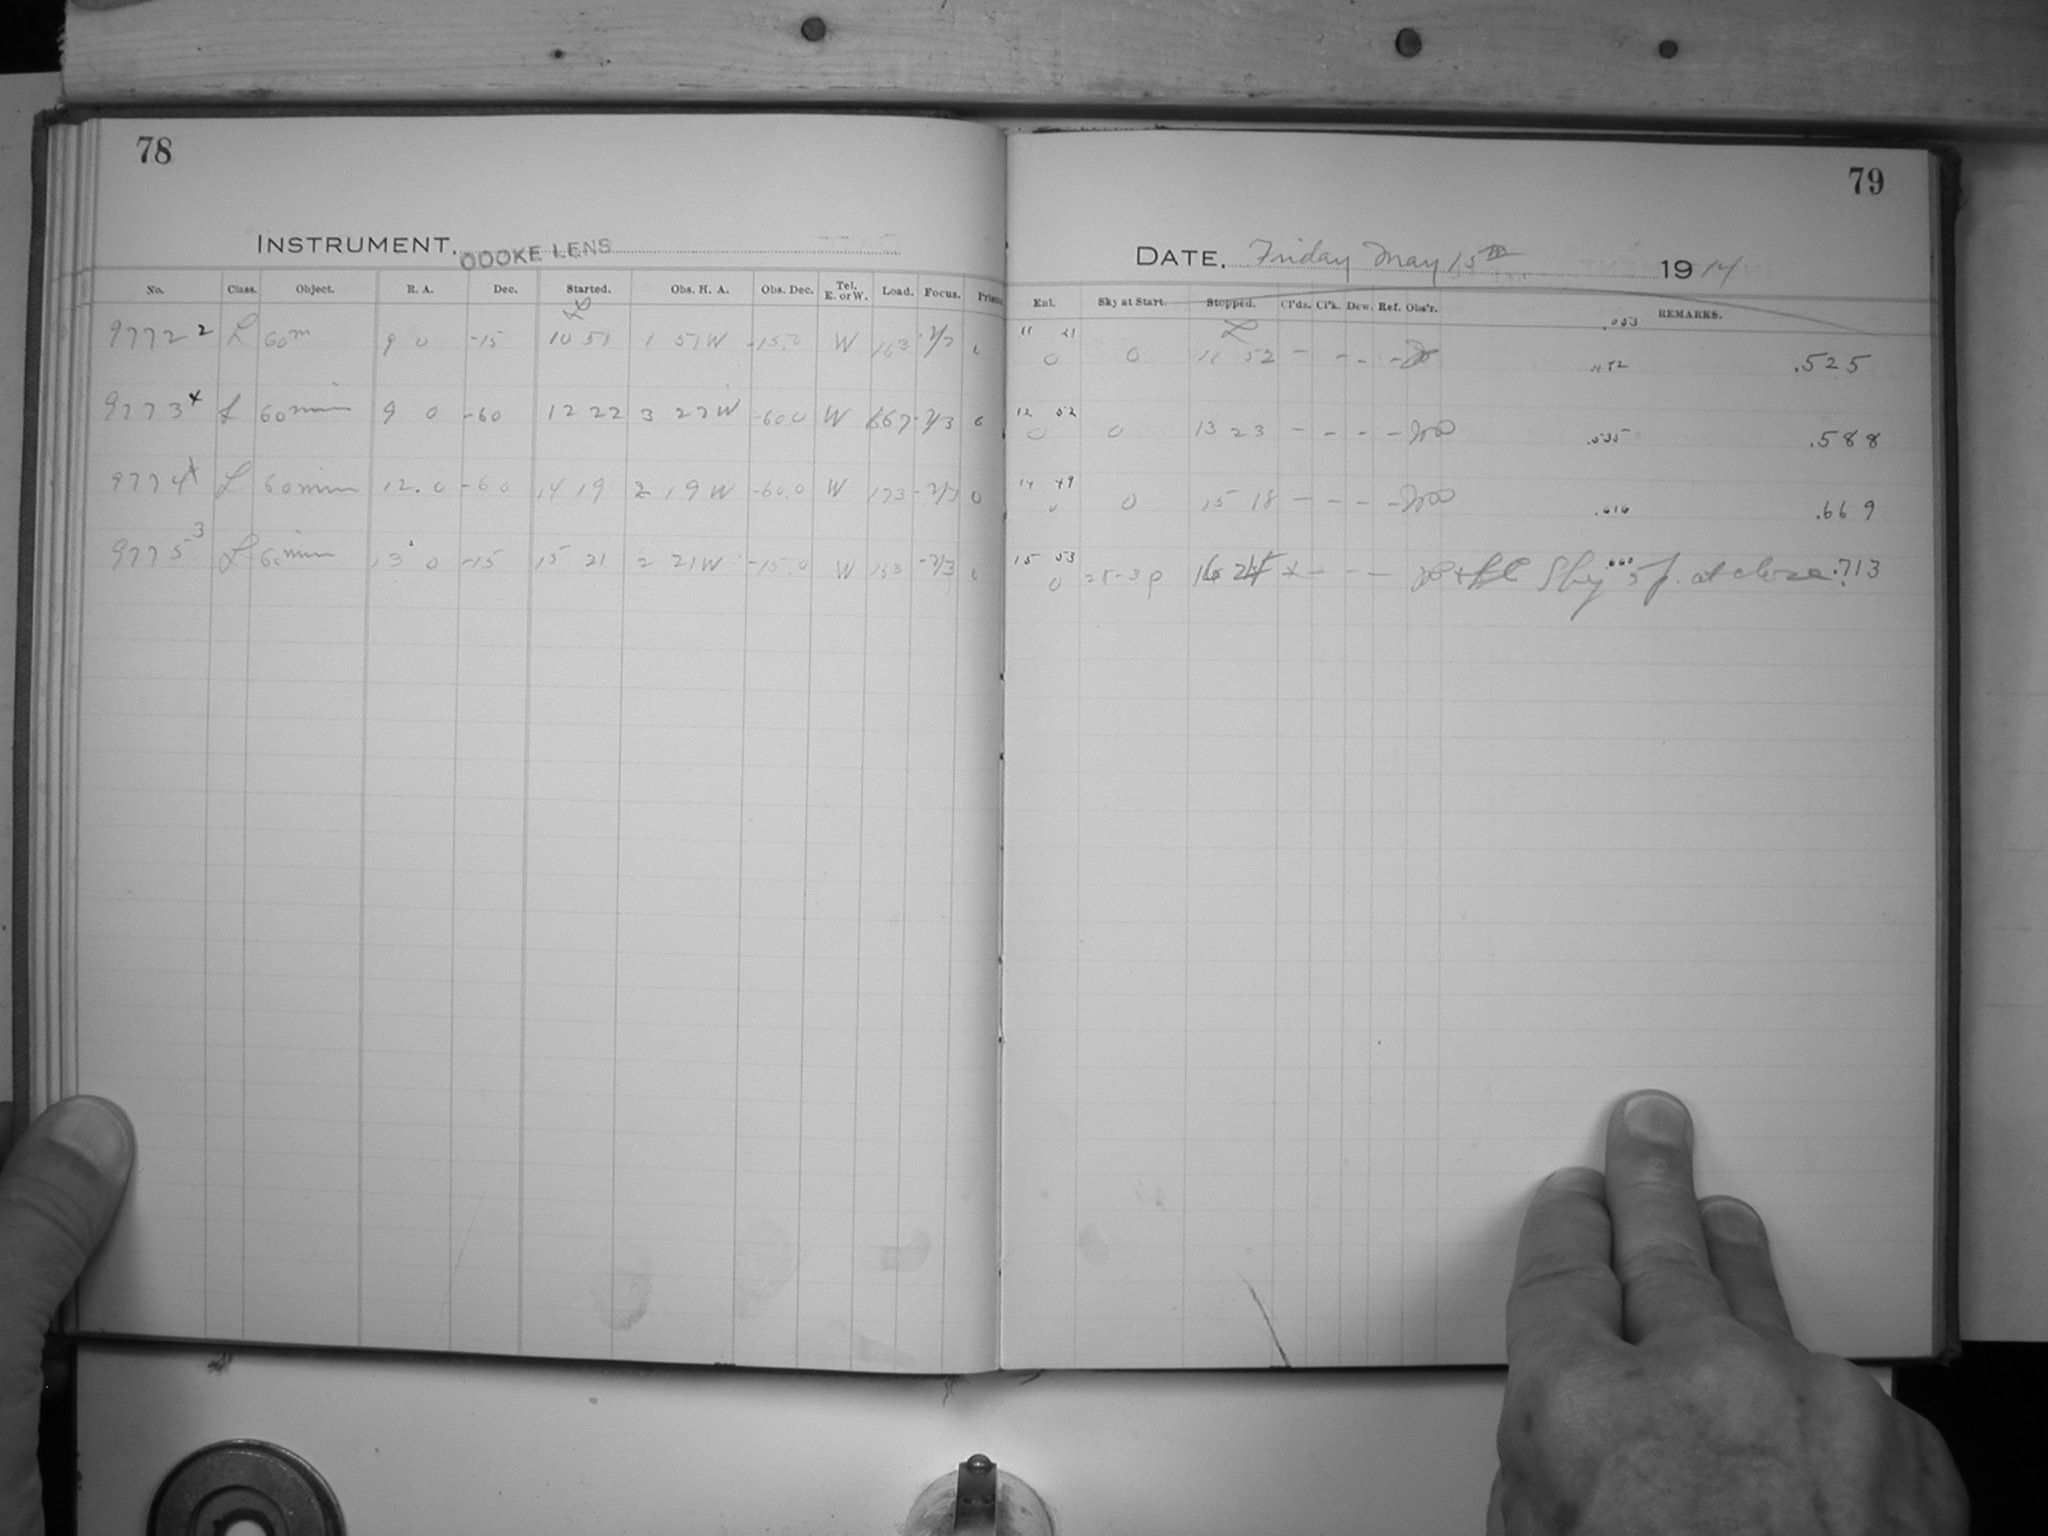 78
INSTRUMENT. COOKE LENS
No. Class. Object. R. A. Dec. Started. Obs. H. A. Obs. Dec. Tel. E. or W. Load. Focus.
9772 2 L 60m 9 0 -15 10 51 1 51 W -15.0 W 163 -7/3
9773 4 L 60 min 9 0 -60 12 22 3 22 W -60.0 W 167 -7/3 0
9774 L 60 min 12. 0 -60 14 19 2 19 W -60.0 W 173 -7/3 0
9775 3 L 60 min 13 0 -15 15 21 2 21 W -15.0 W 163 -7/3
79
DATE. Friday May 15th 1914
Enl. Sky at Start. Stopped. Cl'ds. Cl'k. Dew. Ref. Obs'r. REMARKS.
11 21
0 0 11 52 - - - - .472 .525
12 52
0 0 13 23 - - - - .535 .588
14 49
0 0 15 18 - - - - .616 .669
15 53
0 16 24 - - - .660 Sky at close. .713